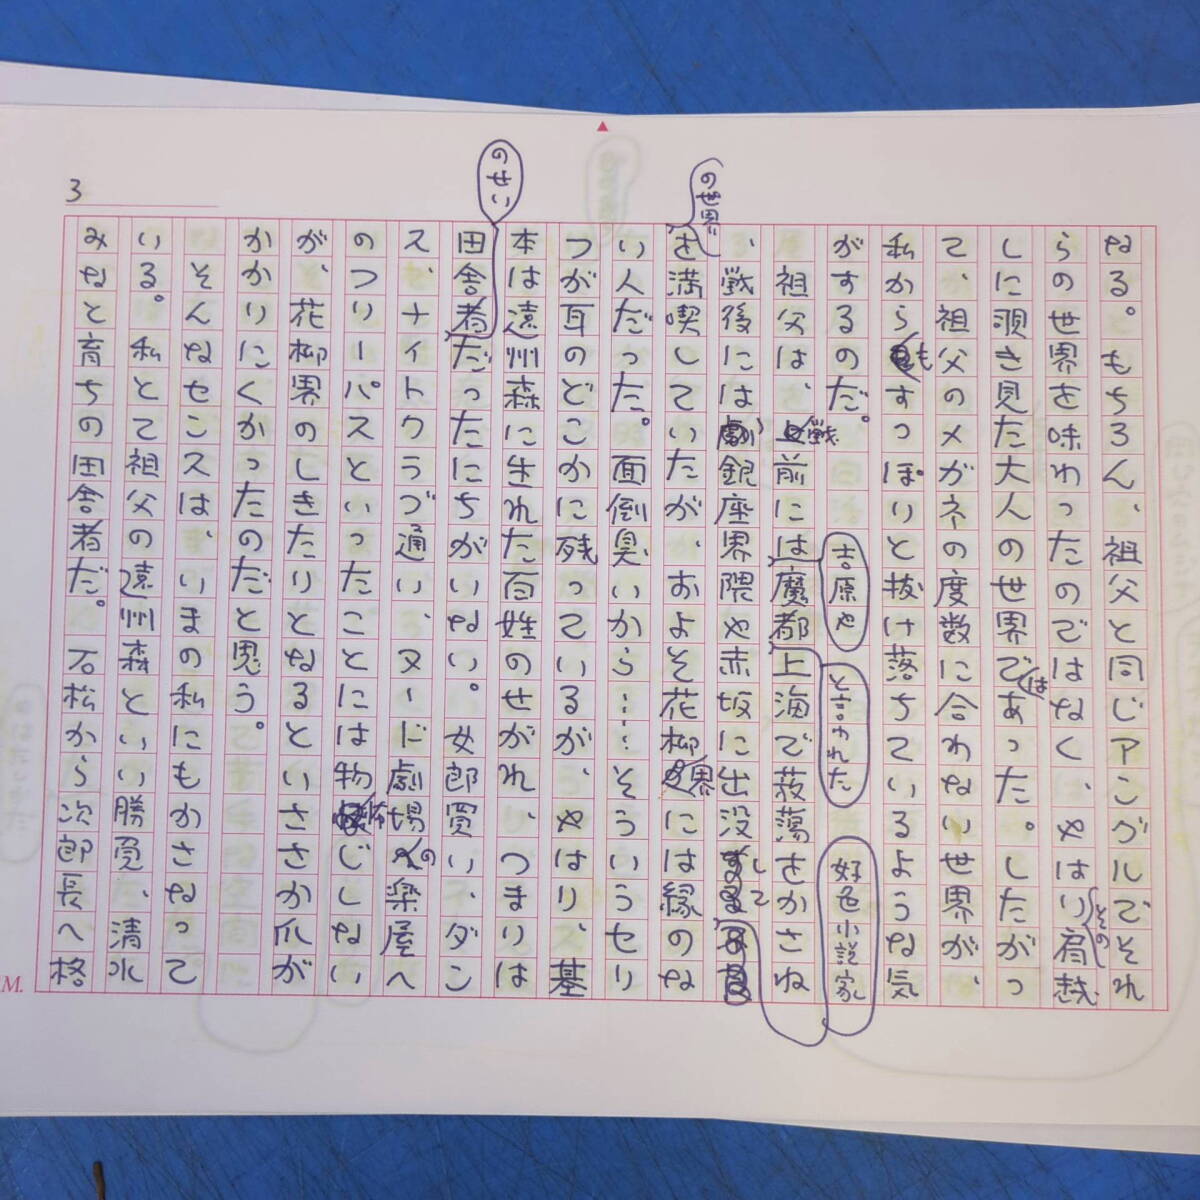 3
なる。もちろん、祖父と同じアングルでそれ
らの世界を味わったのではなく、やはりその肩越
しに覗き見た大人の世界ではあった。したがっ
て、祖父のメガネの度数に合わない世界が、
私からもすっぽりと抜け落ちているような気
がするのだ。
祖父は、戦前には吉原や魔都と言われた上海で放蕩さかさね
、戦後には銀座界隈や赤坂に出没して好色小説家
の世界を満喫していたが、およそ花柳界には縁のな
い人だった。面倒臭いから……そういうセリ
フが耳のどこかに残っているが、やはり、基
本は遠州森に生れた百姓のせがれ、つまりは
田舎者のせいだったにちがいない。女郎買い、ダン
ス、ナイトクラブ通い、ヌード劇場の楽屋へ
のフリーパスといったことには物怖じしない
が、花柳界のしきたりとなるといささか爪が
かかりにくかったのだと思う。
そんなセンスは、いまの私にもかさなって
いる。私とて祖父の遠州森といい勝負、清水
みなと育ちの田舎者だ。石松から次郎長へ格
M.